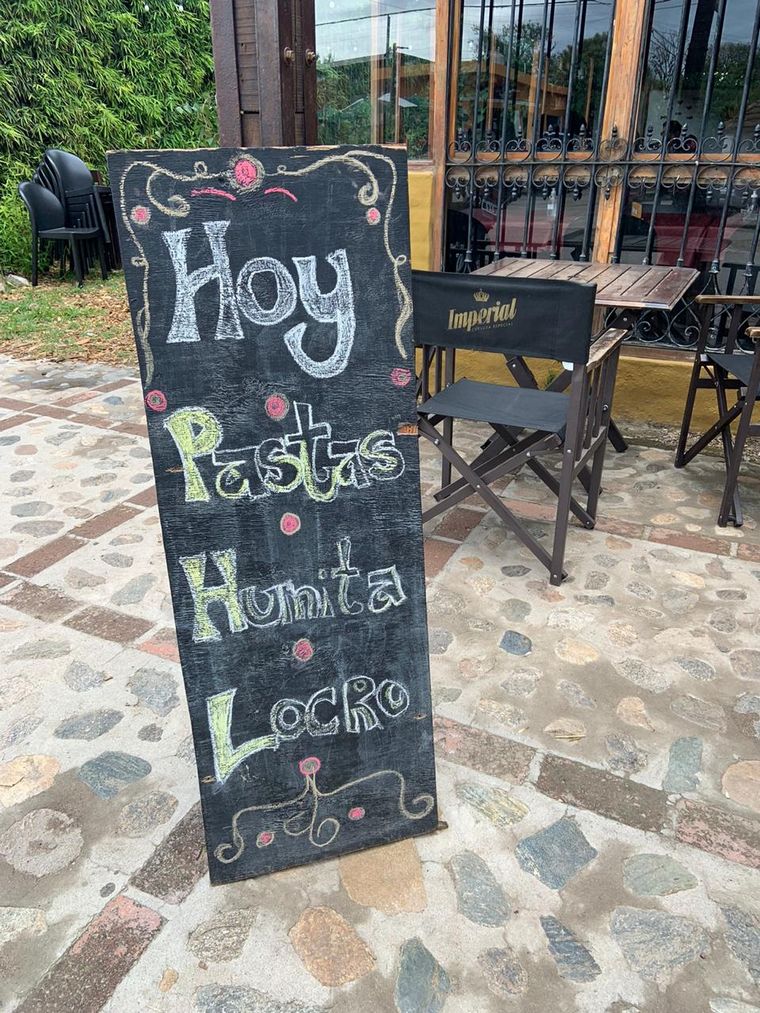 Hoy
Pastas
Humita
Locro
Imperial
CERVEZA ESPECIAL